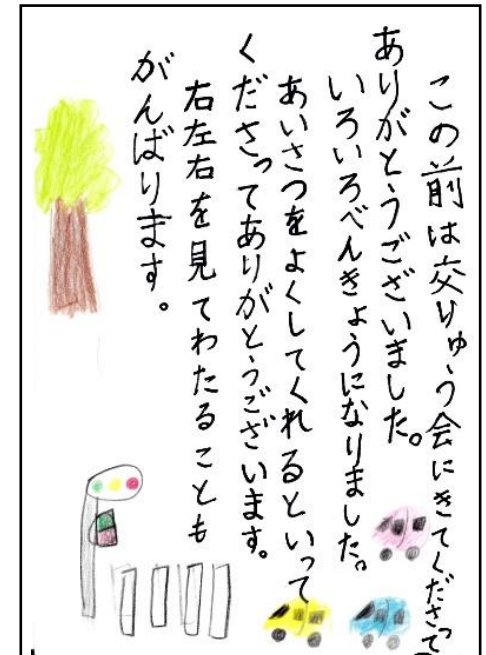 この前は交りゅう会にきてくださって
ありがとうございました。
いろいろべんきょうになりました。
あいさつをよくしてくれるといって
くださってありがとうございます。
右左右を見てわたることも
がんばります。